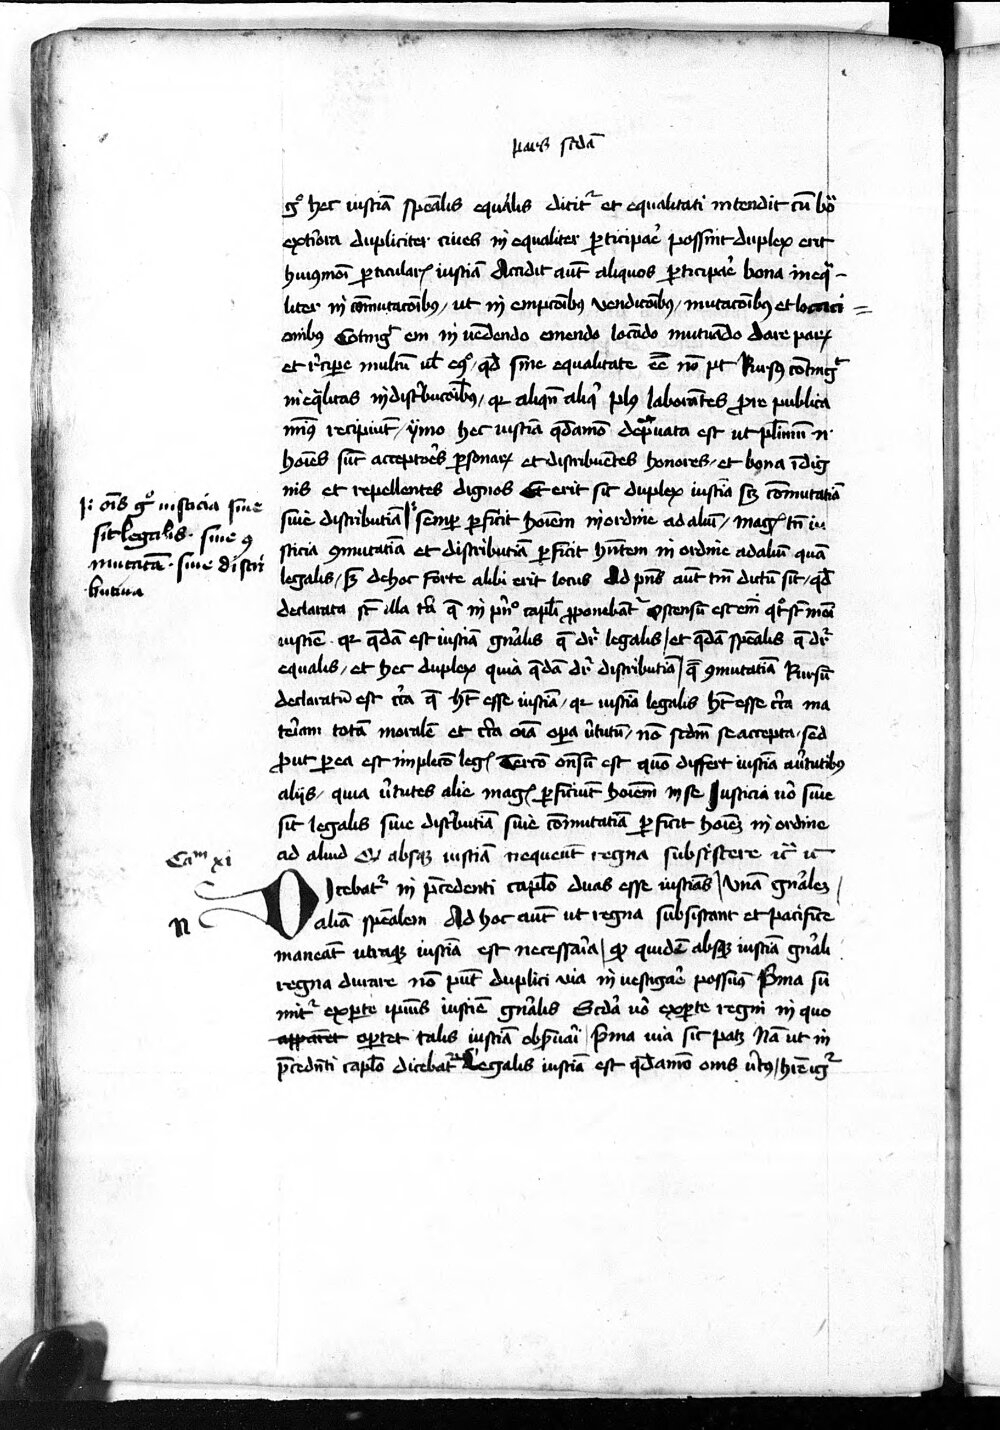 pars scda
go hec iustia spealis equalis dicitr et equalitati intendit cu bo
exteriora dupliciter ciues inequaliter pticipae possint duplex erit
huiusmoi pticularis iustia Accidit aut aliquos pticipae bona inequa-
liter in comutacoibus / ut in empcoibus vendicoibus / mutacoibus et locaci=
onibus Cotingt em in uededo emendo locado mutuado dare paru
et recipe multu ul eo / qd sine equalitate ee no pt Rursus contingt
inequalitas in distribucoibus / qr aliqn aliqi plus laborantes pro re publica
minus recipiut / ymo hec iustia qdamo deprauata est ut plimu n
hoies sut acceptores psonaru et distribuentes honores / et bona indig
nis et repellentes dignos Et erit sic duplex iustia scz comutatia
siue distributia semper pficit hoiem in ordine ad aliud / mags tn iu
sticia comutatia et distributia pficit hntem in ordine ad aliud quam
legalis / sz de hoc forte alibi erit locus Ad pns aut tm dictu sit / qd
declarata st illa tria que in prino capli proponebatr Ostensu est em qt st moi
iustie qr queda est iustia gnalis que dr legalis / et queda spealis que dr
equalis / et hec duplex quia queda dr distributia / que comutatia Rursu
declaratu est circa que ht esse iustia / qr iustia legalis ht esse circa ma
teriam tota morale et circa oia opa uirtutu / no scdm se accepta / sed
prout p ea est implecio legis Tercio onsu est quo differt iustia a uirtutibus
alijs / quia uirtutes alie mags pficiut hoiem in se Iusticia uo siue
sit legalis siue distributia siue comutatia pficit hoiez in ordine
ad aliud Qd absqz iustia nequeut regna subsistere
Dicebatr in precedenti caplo duas esse iustias / Vna gnalez /
alia spealem Ad hoc aut ut regna subsistant et pacifice
maneat utraqz iustia est necessaria / qd quide absqz iustia gnali
regna durare no put duplici via inuestigae possus Prima su
mitr ex pte ipius iustie gnalis Scda uo ex pte regni in quo
apparet oportet talis iustia obseruari / Prima uia sic patz Na ut in
precednti caplo dicebatr Legalis iustia est qdamo omis uirtus / hic igr
ois go iusticia siue
sit legalis siue co
mutatia siue distri
butiua
Cam xi